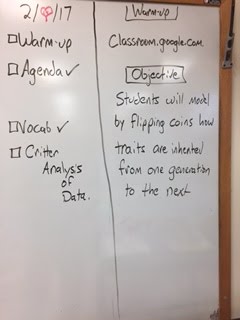 2/❤/17
Warm-up
Agenda ✓
Vocab ✓
Critter
Analysis
of
Data.
Warm-up
Classroom.google.com
Objective
Students will model
by flipping coins how
traits are inherited
from one generation
to the next